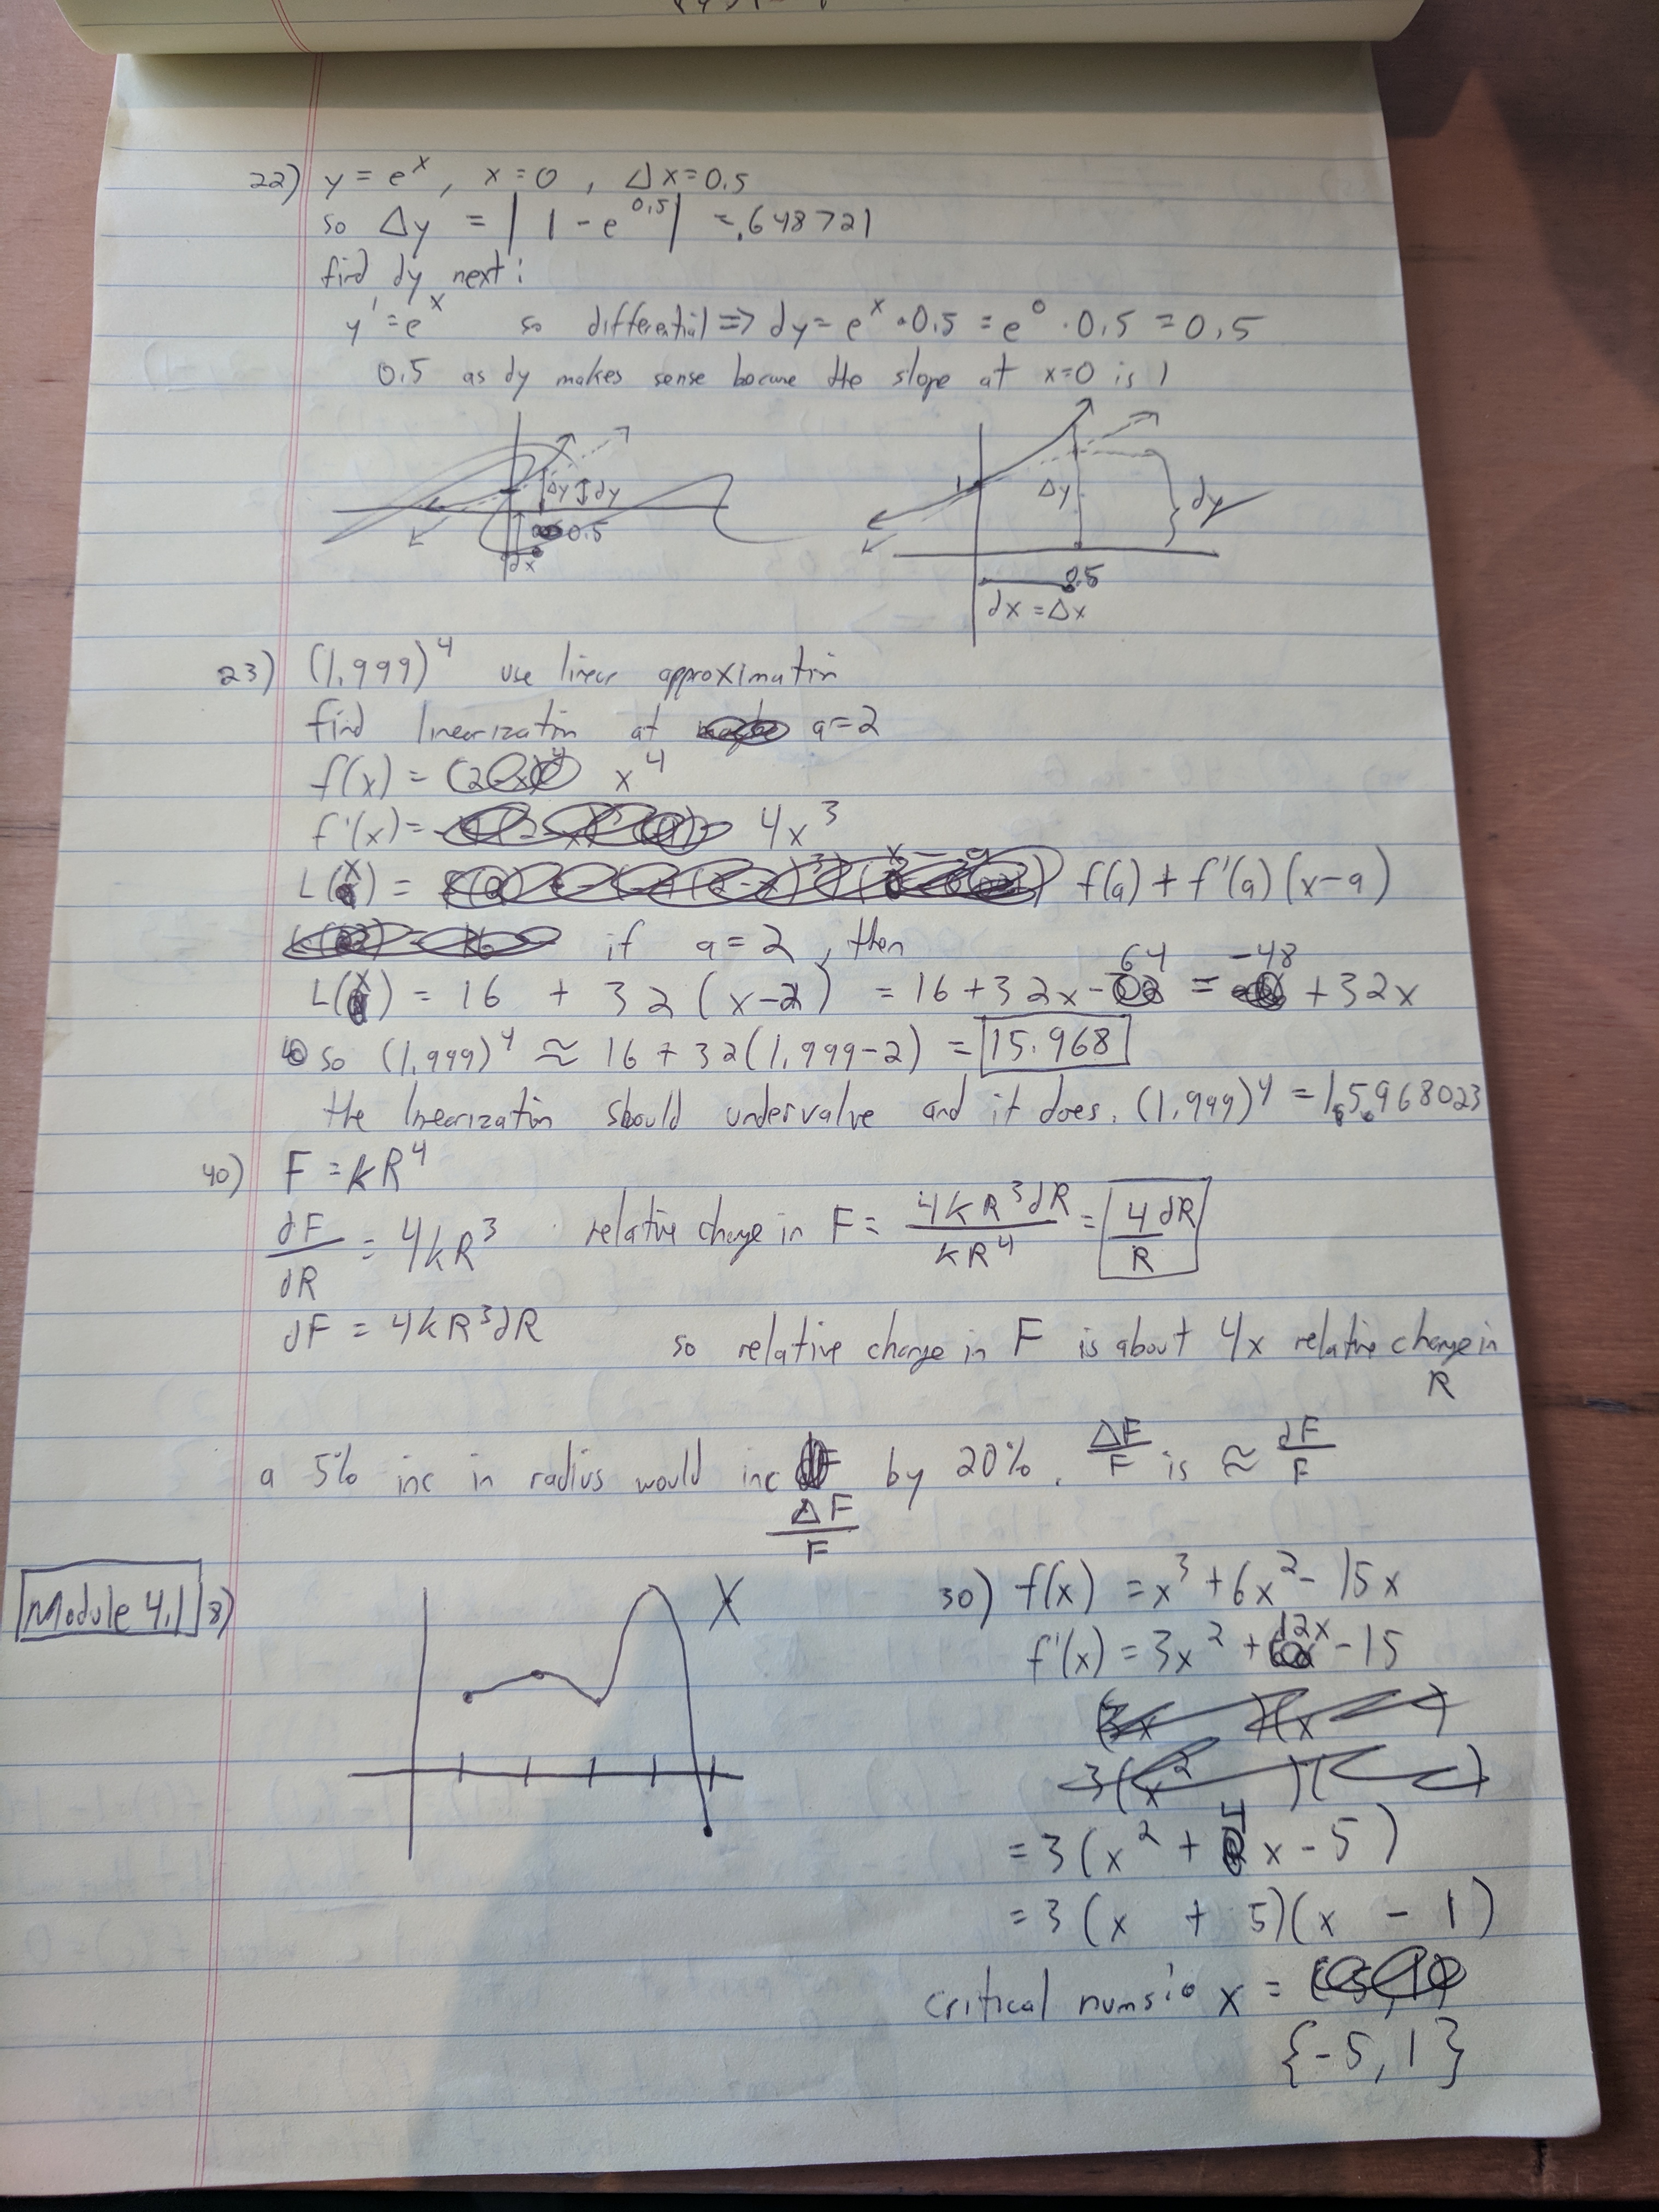 22) y = e^x, x=0, Δx=0.5
so Δy = |1 - e^0.5| = .648721
find dy next:
y' = e^x so differential => dy = e^x · 0.5 = e^0 · 0.5 = 0.5
0.5 as dy makes sense becuse the slope at x=0 is 1
Δy dy
0.5
dx
1
Δy
dy
0.5
dx = Δx
23) (1.999)^4 use linear approximation
find linearization at a=2
f(x) = x^4
f'(x) = 4x^3
L(x) = f(a) + f'(a)(x-a)
if a=2, then
L(x) = 16 + 32(x-2) = 16+32x-64 = -48+32x
so (1.999)^4 ≈ 16 + 32(1.999-2) = 15.968
the linearization should undervalue and it does. (1.999)^4 = 15.968023
40) F = kR^4
dF/dR = 4kR^3 relative change in F = 4kR^3dR/kR^4 = 4dR/R
dF = 4kR^3dR
so relative change in F is about 4x relative change in
R
a 5% inc in radius would inc ΔF/F by 20%. ΔF/F is ≈ dF/F
Module 4.1
8)
X
30) f(x) = x^3 + 6x^2 - 15x
f'(x) = 3x^2 + 12x - 15
= 3(x^2 + 4x - 5)
= 3(x + 5)(x - 1)
critical nums: x =
{-5, 1}